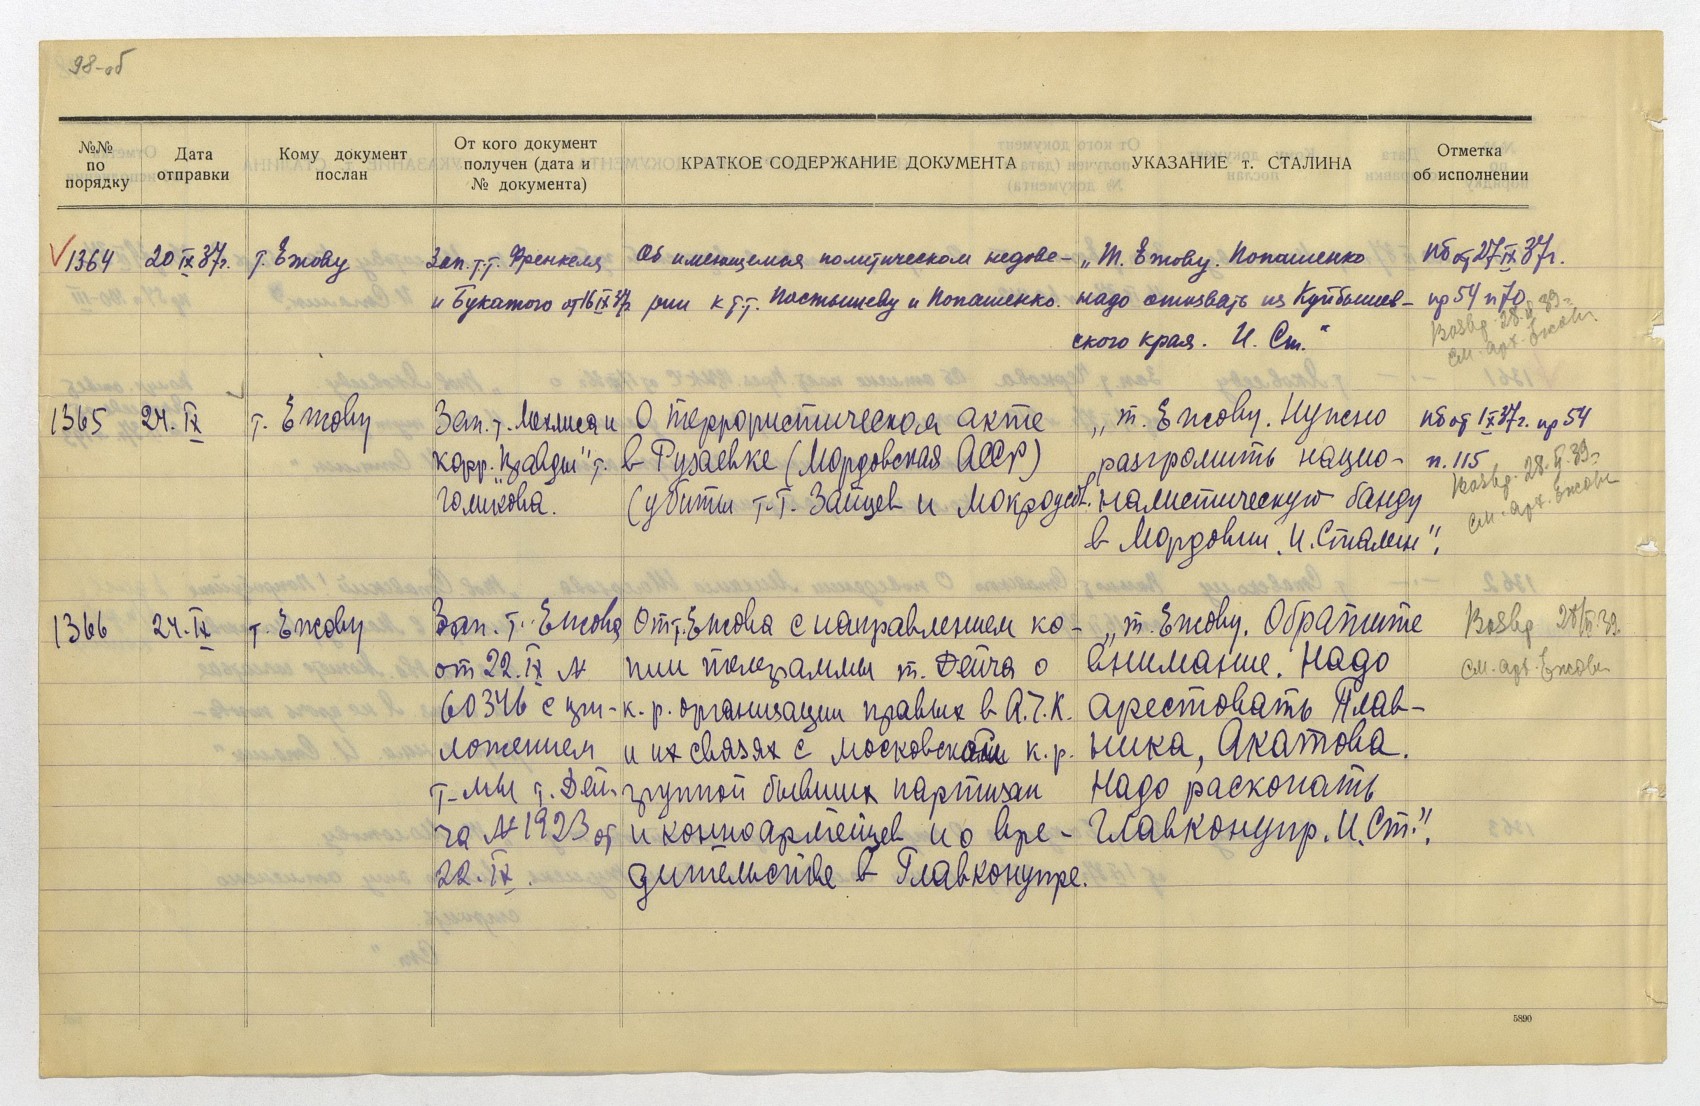 98-об
№№
по
порядку
Дата
отправки
Кому документ
послан
От кого документ
получен (дата и
№ документа)
КРАТКОЕ СОДЕРЖАНИЕ ДОКУМЕНТА
УКАЗАНИЕ т. СТАЛИНА
Отметка
об исполнении
1364
20 IX 37г.
т. Ежову
Зап. т.т. Френкеля
и Букатого от 16 IX 37г
Об имеющемся политическом недове-
рии к т.т. Постышеву и Попашенко.
„Т. Ежову. Попашенко
надо отозвать из Куйбышев-
ского края. И. Ст."
ПБ от 27 IX 37г.
пр 54 п 70
Возвр. 28.II.39г
см. арх. Ежова
1365
24. IX
т. Ежову
Зап. т. Мехлиса и
корр. „Правды" т.
Голикова.
О террористическом акте
в Рузаевке (Мордовская АССР)
(убиты т.т. Зайцев и
„т. Ежову. Нужно
разгромить нацио-
налистическую банду
в Мордовии. И. Сталин".
ПБ от IX 37г. пр 54
п. 115
Возвр. 28.II.39г
см. арх. Ежова
1366
24. IX
т. Ежову
Зап. т. Ежова
от 22. IX №
60346 с при-
ложением
т-мы т. Дей-
ча № 1923 от
22. IX.
От т. Ежова с направлением ко-
пии телеграммы т. Дейча о
к.р. организации правых в А.Ч.К.
и их связях с московской к.р.
группой бывших партизан
и конноармейцев и о вре-
дительстве в Главконупре.
„т. Ежову. Обратите
внимание. Надо
арестовать Плав-
ника, Акатова.
Надо раскопать
Главконупр. И. Ст.".
Возвр 28/II.39г.
см. арх. Ежова
5890